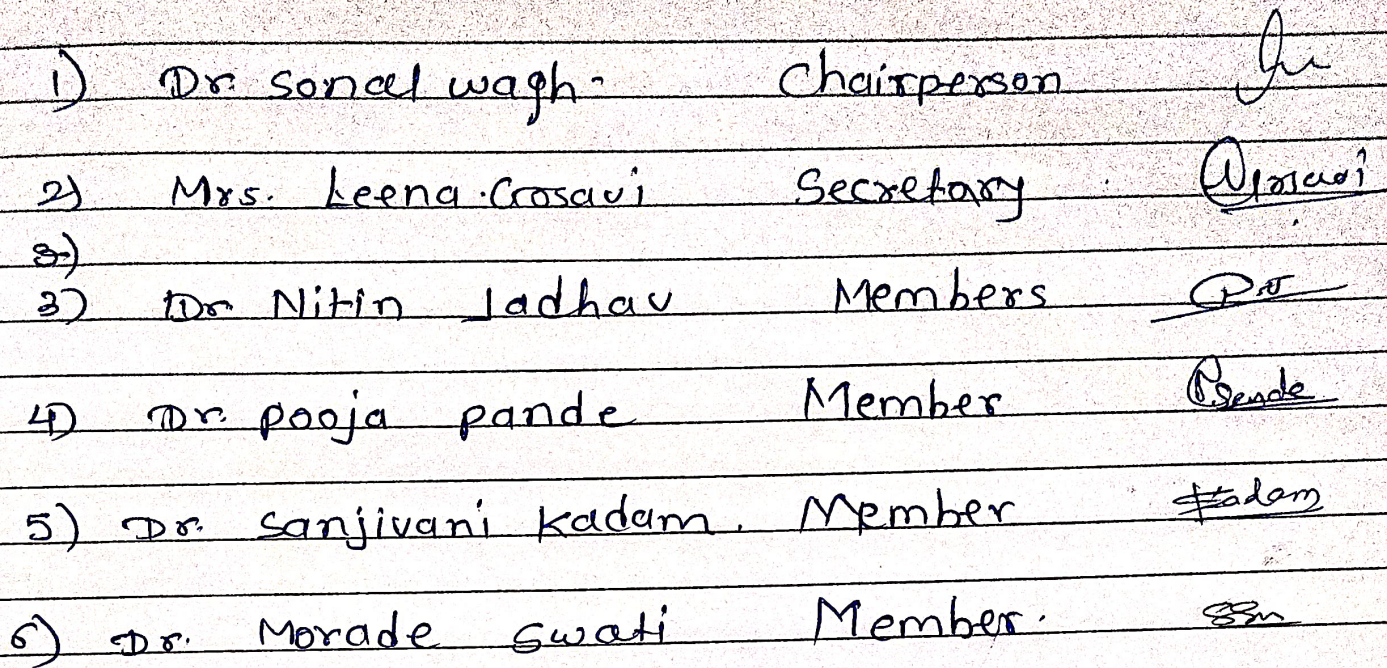 1) Dr. Sonal wagh - Chairperson
2) Mrs. Leena. Gosavi Secretary
3)
3) Dr Nitin Jadhav Members
4) Dr. pooja pande Member Psende
5) Dr. Sanjivani Kadam. Member Kadam
6) Dr. Morade Swati Member.